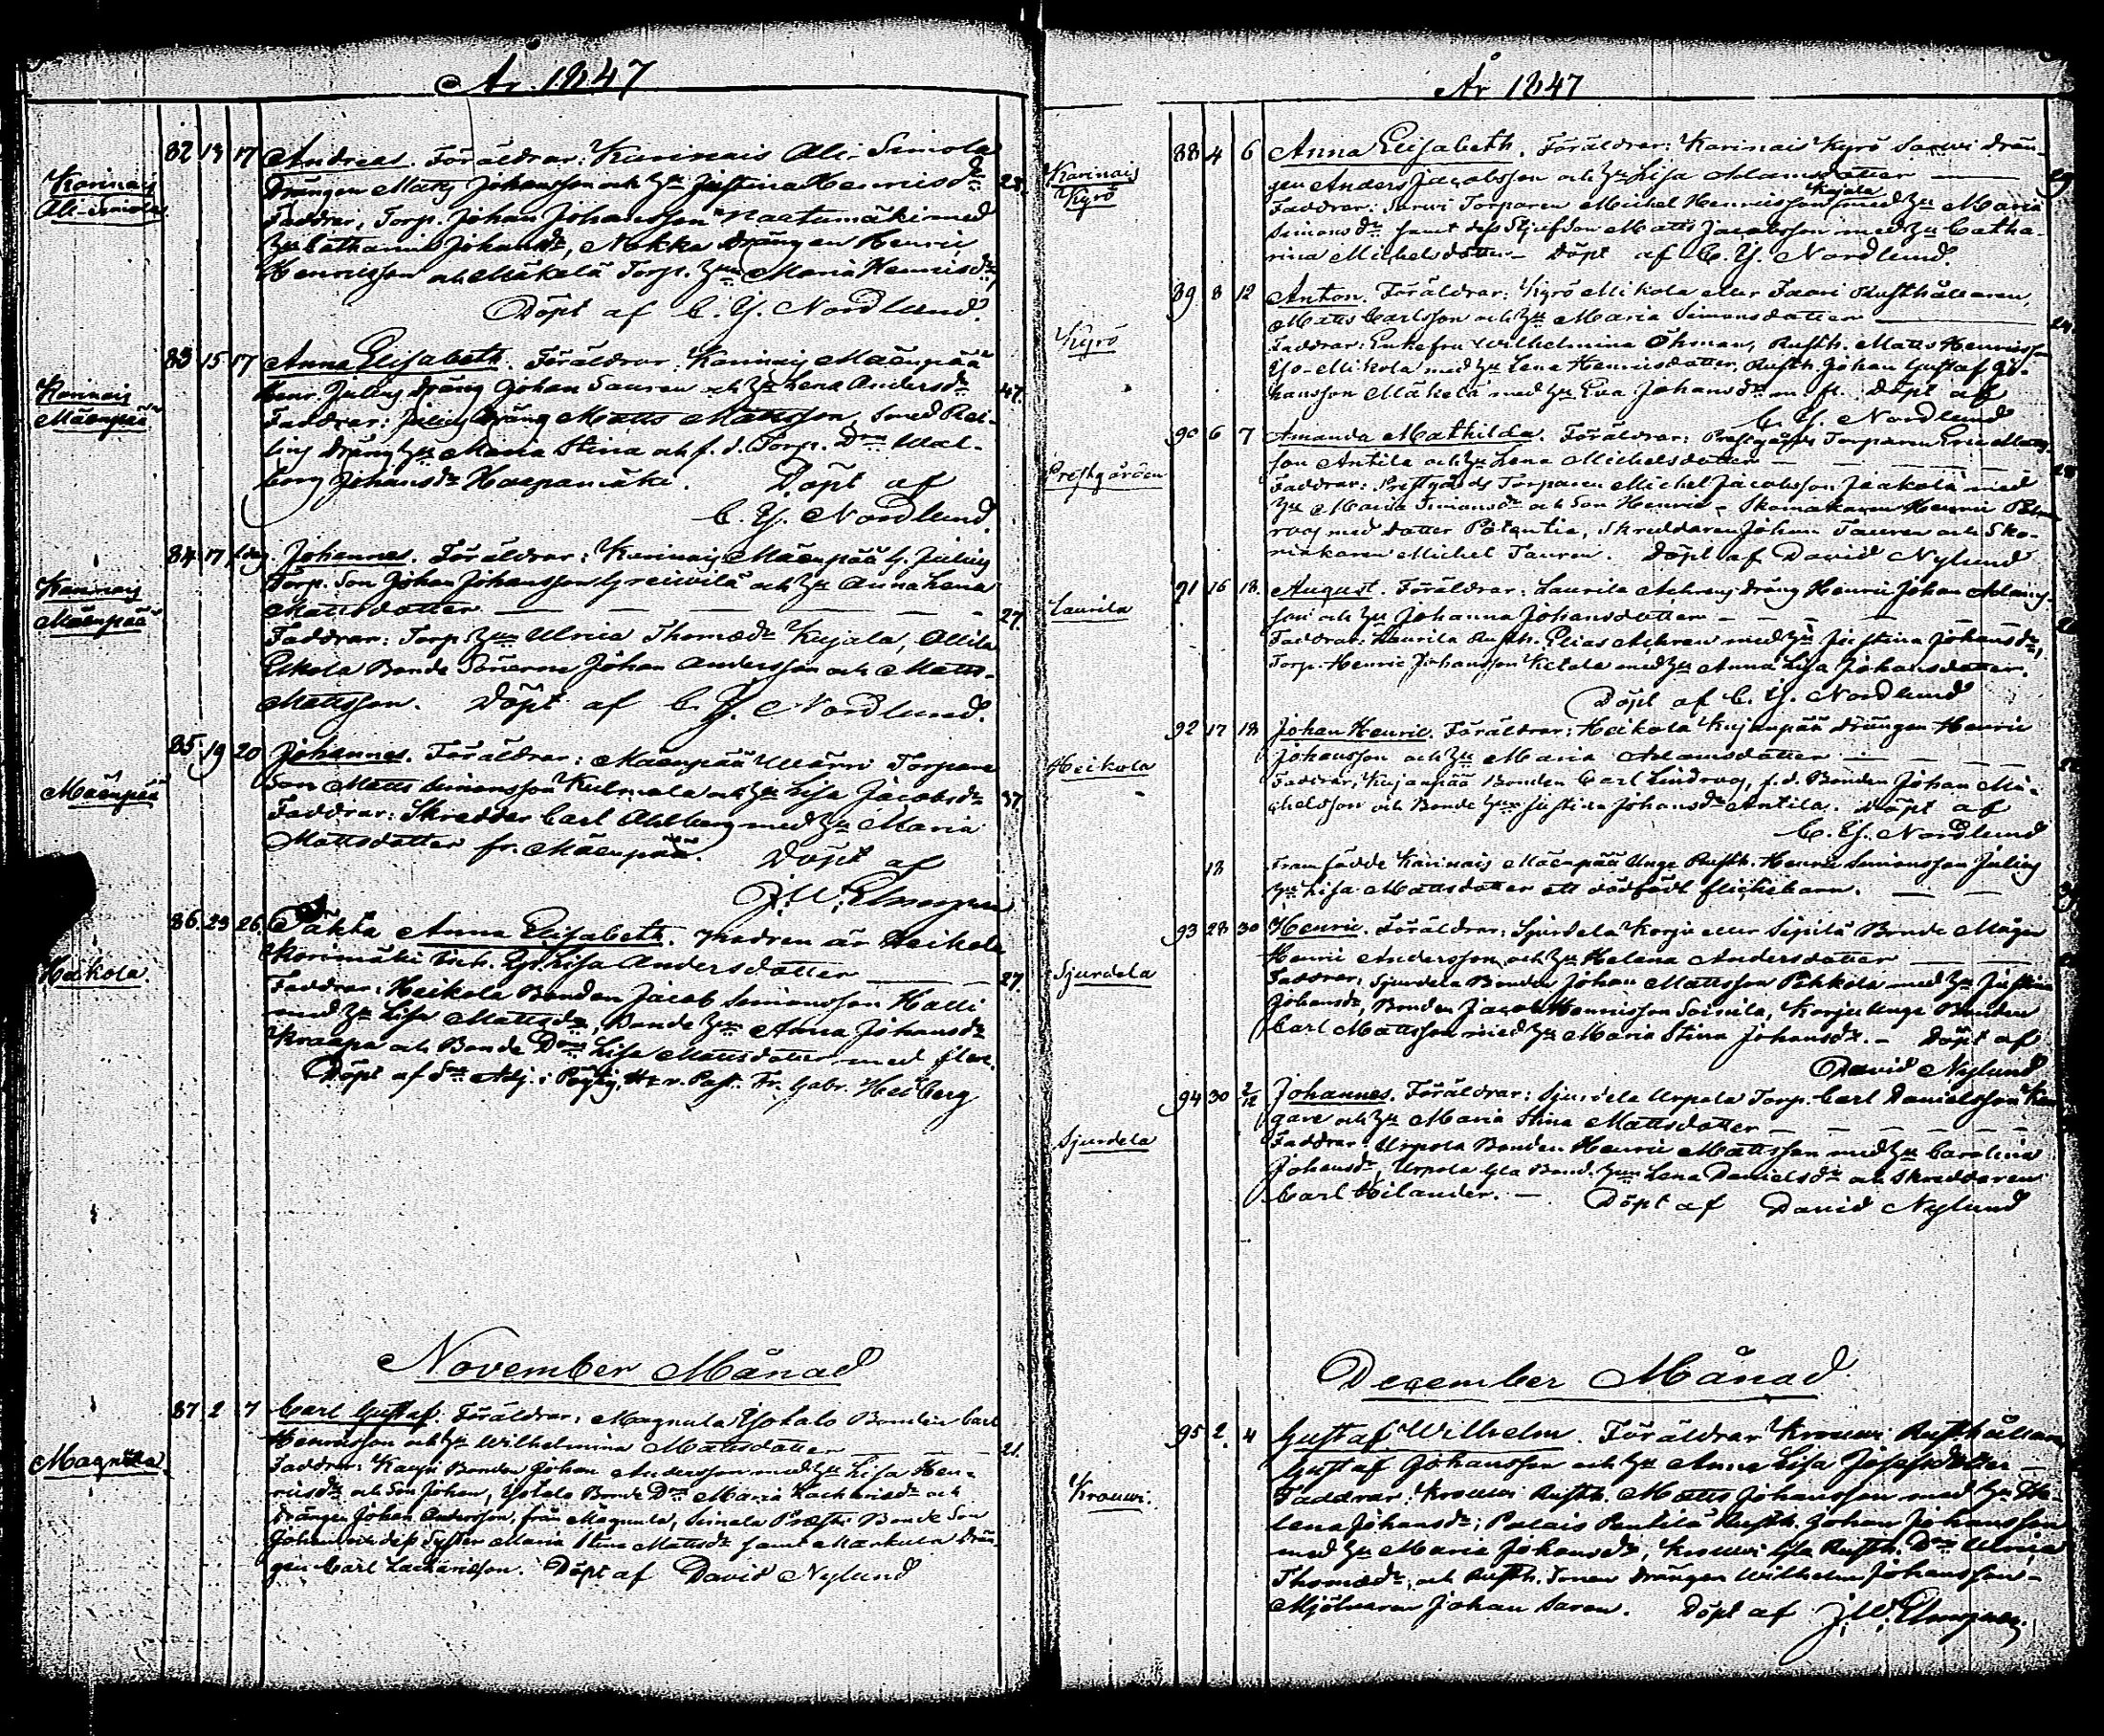 År 1847
Karinais
Ali-Simola
82 13 17 Andreas. Föräldrar: Karinais Ali-Simola
Drängen Matts Johansson och H:u Justina Henricsd:r 28.
Faddrar: Torp. Johan Johansson med
H:u Catharina Johansd:r, Nokka drängen Henric
Henricsson och Mäkelä Torp. H:un Maria Henricsd:r
Döpt af C. Y. Nordlund.
Karinais
Mäenpää
83 15 17 Anna Elisabeth. Föräldrar: Karinais Mäenpää
Henr. Julins dräng Johan Tauren och H:u Lena Andersd:r 47.
Faddrar: Julins dräng Matts Mattsson, Smed
dräng H:u Maria Stina och f. d. Torp. D:n Wal-
borg Johansd:r Haapamäki. Döpt af
C. Y. Nordlund.
Karinais
Mäenpää
84 17 s. dag Johannes. Föräldrar: Karinais Mäenpää H. Julins
Torp. Son Johan Johansson och H:u Anna Lena
Mattsdotter 27.
Faddrar: Torp H:un Ulrica Thomæd:r Kujala, Ollila
Eskola Bonde Sönerne Johan Andersson och Matts
Mattsson. Döpt af C. Y. Nordlund.
Mäenpää
85 19 20 Johannes. Föräldrar: Mäenpää Torpare
Son Matts Simonsson Kulmala och H:u Lisa Jacobsd:r 37.
Faddrar: Skredder Carl Ahlberg med H:u Maria
Mattsdotter fr. Mäenpää. Döpt af
J. W. Elmgren
Heikola
86 23 26 Oäkta Anna Elisabeth. Modren är Heikola
Korimäki Inh. Lisa Andersdotter 27.
Faddrar: Heikola Bonden Jacob Simonsson Halli
med H:u Lisa Mattsd:r, Bonde H:un Anna Johansd:r
Kraapa och Bonde D:n Lisa Mattsdotter med flere.
Döpt af Adj. i Pöytis, H:r v. Past. Fr. Gabr. Hedberg
November Månad
Magnula
87 2 7 Carl Gustaf. Föräldrar: Magnula Yotalo Bonden Carl
Henricsson och H:u Wilhelmina Mattsdotter 21.
Faddrar: Bonden Johan Andersson med H:u Lisa Hen-
ricsd:r och Son Johan, Yotalo Bonde D:n Maria Zachariæd:r och
drängen Johan Andersson, från Magnula, Bonde Son
Johan och dess Syster Maria Stina Mattsd:r samt Markula Drän-
gen Carl Zachariæson. Döpt af David Nylund
År 1847
Karinais
Kyrö
88 4 6 Anna Elisabeth. Föräldrar: Karinais Kyrö Sarwi Drän-
gen Anders Jacobsson och H:u Lisa Adamsdotter 29.
Faddrar: Sarwi Torparen Michel Henricsson Kujala med H:u Maria
Simonsd:r samt dess Stjufson Matts Jacobsson med H:u Catha-
rina Michelsdotter. Döpt af C. Y. Nordlund.
Kyrö
89 8 12 Anton. Föräldrar: Kyrö Mikola eller Faari Rusthållaren,
Matts Carlsson och H:u Maria Simonsdotter
Faddrar: Enkefru Wilhelmina Öhman, Rusth. Matts Henricsson
Yo-Mikola med H:u Lena Henricsdotter, Rusth. Johan Gustaf Jo-
hansson Mäkelä med H:u Eva Johansd:r m. fl. Döpt af
C. Y. Nordlund
Prestgården
90 6 7 Amanda Mathilda. Föräldrar: Prestgårds Torparen Eric Matts-
son Antila och H:u Lena Michelsdotter
Faddrar: Prestgårds Torparen Michel Jacobsson Jaakola med
H:u Maria Simonsd:r och Son Henric, Skomakaren Henric
med dotter Potentia, Skreddaren Johan Tauren och Sko-
makaren Michel Tauren. Döpt af David Nylund
Laurila
91 16 18 August. Föräldrar: Laurila Achrens dräng Henric Johan Adams-
son och H:u Johanna Johansdotter
Faddrar: Laurila Rusth. Elias Achren med H:u Justina Johansd:r,
Torp. Henric Johansson Ketola med H:u Anna Lisa Johansdotter.
Döpt af C. Y. Nordlund
Heikola
92 17 18 Johan Henric. Föräldrar: Heikola Kujanpää Drängen Henric
Johansson och H:u Maria Adamsdotter
Faddrar: Kujanpää Bonden Carl Lindroos, f. d. Bonden Johan Mi-
chelsson och Bonde H:un Justina Johansd:r Antila. Döpt af
C. Y. Nordlund
18 Framfödde Karinais Mäenpää Unge Rusth. Henric Simonsson Julins
H:u Lisa Mattsdotter ett dödfödt flickebarn.
Sjurdela
93 28 30 Henric. Föräldrar: Sjurdela Korju eller Sipilä Bonde Mågen
Henric Andersson och H:u Helena Andersdotter
Faddrar: Sjurdela Bonden Johan Mattsson Pekkola med H:u Justina
Johansd:r, Bonden Jacob Henricsson Soinila, Korju Unge Bonden
Carl Mattsson med H:u Maria Stina Johansd:r. Döpt af
David Nylund
Sjurdela
94 30 2/12 Johannes. Föräldrar: Sjurdela Urpola Torp. Carl Danielsson Kan-
gare och H:u Maria Stina Mattsdotter
Faddrar: Urpola Bonden Henric Mattsson med H:u Carolina
Johansd:r, Urpola Gla Bond. H:un Lena Danielsd:r och Skreddaren
Carl Hilander. Döpt af David Nylund
December Månad
Krouwi.
95 2 4 Gustaf Wilhelm. Föräldrar Krouwi Rusthållaren
Gustaf Johansson och H:u Anna Lisa Josephsdotter
Faddrar: Krouwi Rusth. Matts Johansson med H:u He-
lena Johansd:r; Palais Penkilä Rusth. Johan Johansson
med H:u Maria Johansd:r, Krouwi Rusth. D:n Ulrica
Thomæd:r, och Rusth. Sonen Drängen Wilhelm Johansson
Mjölnaren Johan Saren. Döpt af J. W. Elmgren